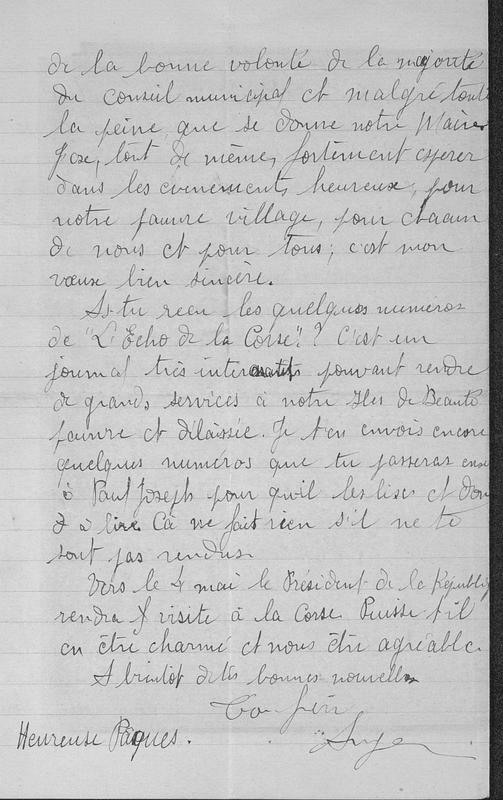 de la bonne volonté de la majorité
du conseil municipal et malgré toute
la peine que se donne notre Maire
tout de même, fortement esperer
dans les évènements heureux, pour
notre pauvre village, pour chacun
de nous et pour tous; c'est mon
vœux bien sincère.
As-tu recu les quelques numeros
de "L'Echo de la Corse"? C'est un
journal très pouvant rendre
de grands services à notre Iles de Beauté
pauvre et délaissée. Je t'en envois encore
quelques numéros que tu passeras
à Paul Joseph pour qu'il les lises et
à lire Cà ne fait rien s'il ne te
sont pas rendus.
Vers le 4 mai le Président de la Républiq
rendra visite à la Corse Puisse t il
en être charmé et nous être agréable.
A bientôt de tes bonnes nouvelles
Ton
Heureuse Pâques.